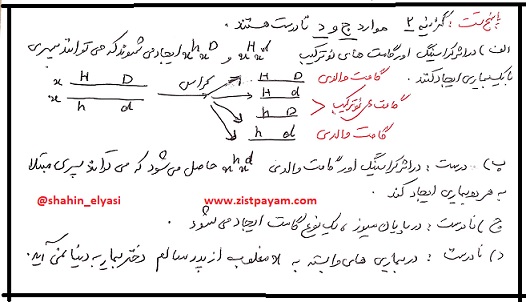 پاسخ تست : گزینه ۲ موارد ج و د نادرست هستند .
الف) در اثر کراسینگ اور گامت های نوترکیب xʰᴰ و xᴴᵈ ایجاد می شوند که می توانند پسری
با یک بیماری ایجاد کنند .
x H D
x h d
کراس
H D گامت والدی
H d
h D
گامت های نوترکیب
h d گامت والدی
ب) درست : در اثر کراسینگ اور گامت والدی xʰᵈ حاصل می شود که می تواند پسری مبتلا
به هر دو بیماری ایجاد کند .
@shahin_elyasi
www.zistpayam.com
ج) نادرست : در پایان میوز ، یک نوع گامت ایجاد می شود .
د) نادرست : در بیماری های وابسته به x مغلوب از پدر سالم دختر بیمار به دنیا نمی آید .